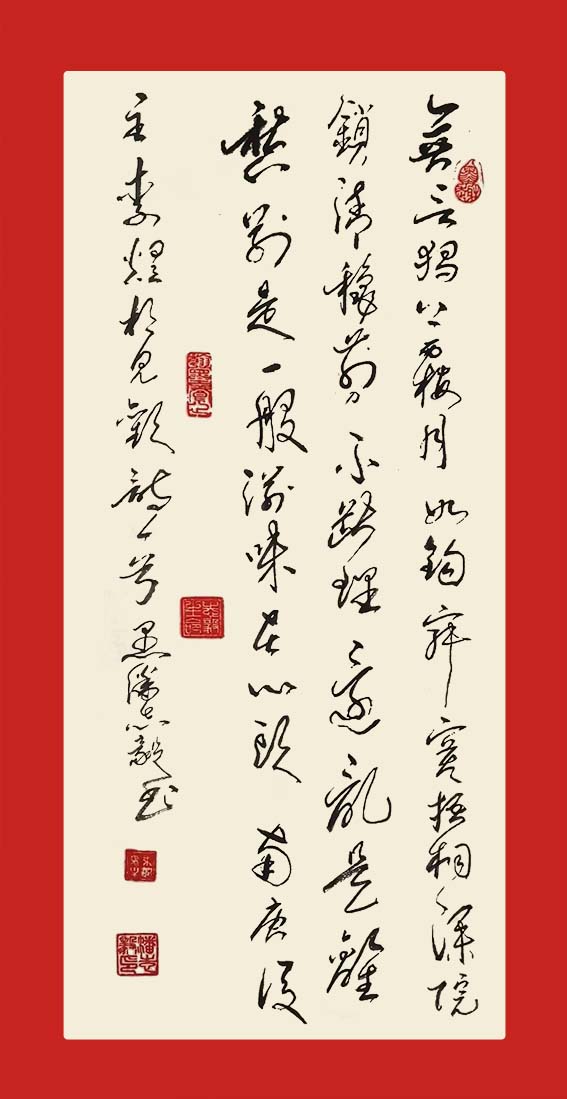 無言獨上西樓月如鉤寂寞梧桐深院
鎖清秋剪不斷理還亂是離
愁別是一般滋味在心頭 南唐後
主李煜相見歡詩一首 潘志毅书
潘志毅印